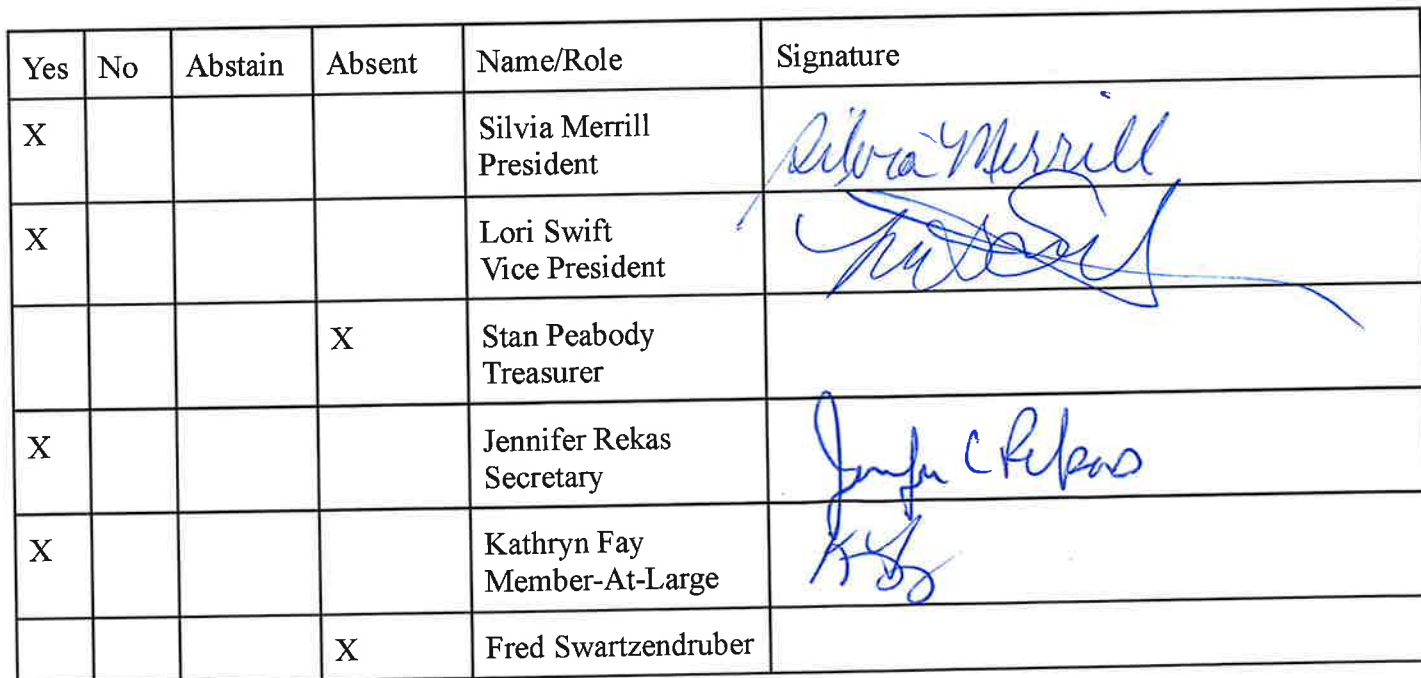 Yes No Abstain Absent Name/Role Signature
X Silvia Merrill Silvia Merrill
President
X Lori Swift
Vice President
X Stan Peabody
Treasurer
X Jennifer Rekas Jennifer C Rekas
Secretary
X Kathryn Fay
Member-At-Large
X Fred Swartzendruber